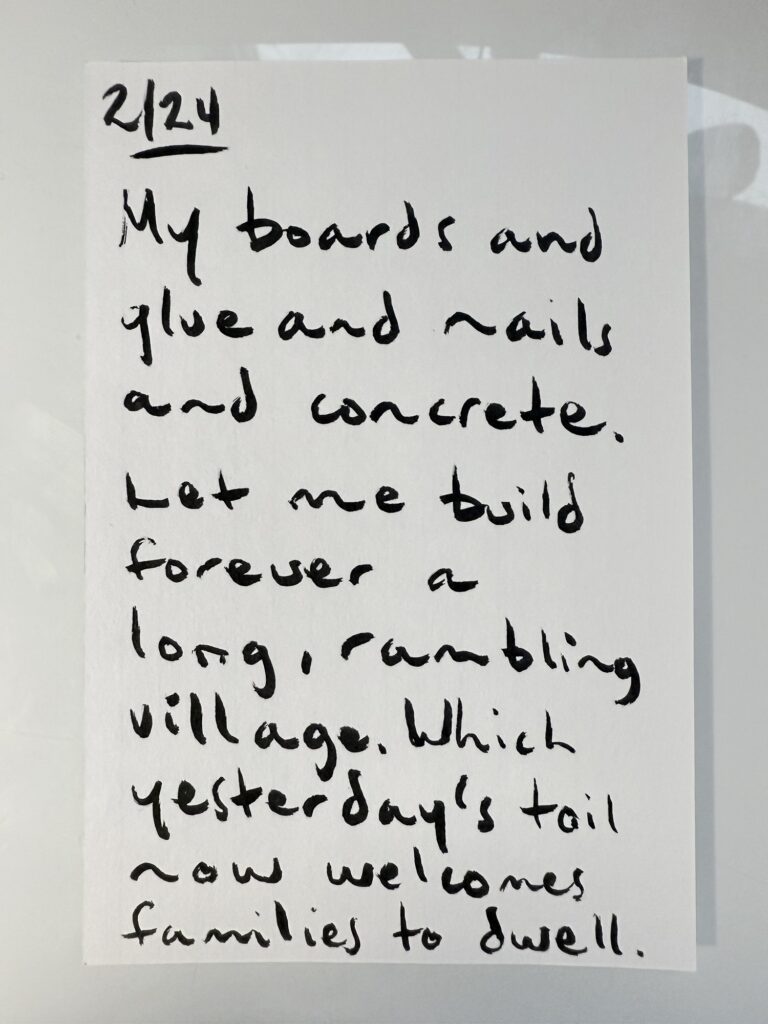 2/24
My boards and
glue and nails
and concrete.
Let me build
forever a
long, rambling
village. Which
yesterday's toil
now welcomes
families to dwell.